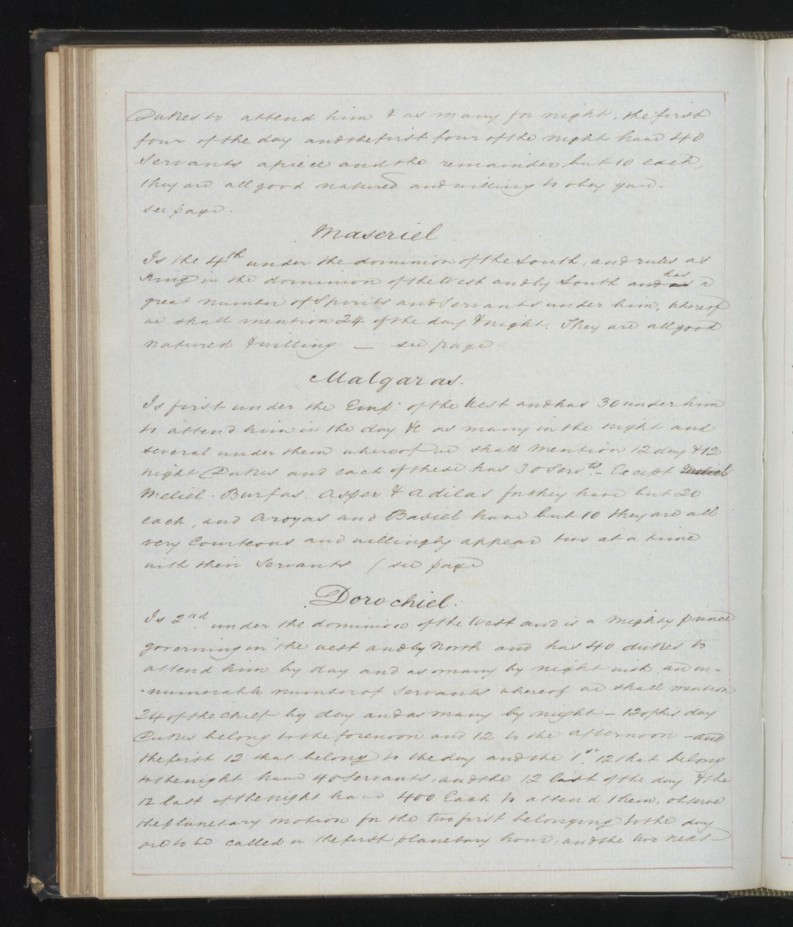 Dukes to attend him & as many for night, the first
four of the day and the first four of the night have 40
Servants apiece and the remainder but 10 each,
they are all good natured and willing to obey you.
see page.
Maseriel
Is the 4th under the dominion of the South, and rules as
King in the dominion of the West and by South and has a
great number of Spirits and Servants under him, whereof
we shall mention 24 of the day & night. They are all good
natured & willing — see page
Malgaras.
Is first under the Emp. of the West and has 30 under him
to attend him in the day & as many in the night and
several under them whereof we shall mention 12 day & 12
night Dukes and each of these has 30 Servts. Except
Meliel. Burfas. Asper & Adilas for they have but 20
each, and Aroyas and Basiel have but 10 they are all
very Courteous and willingly appear two at a time
with their Servants / see page
Dorochiel.
Is 2nd. under the dominion of the West and is a mighty prince
governing in the west and by North and has 40 dukes to
attend him by day and as many by night with an in-
-numerable number of Servants whereof we shall mention
24 of the chief by day and as many by night – 12 of the day
Dukes belong to the forenoon and 12 to the afternoon and
the first 12 that belong to the day and the 1st. 12 that belong
to the night have 40 Servants, and the 12 last of the day & the
12 last of the night have 400 Each to attend them, observe
the planetary motion for the two first belonging to the day
are to be called in the first planetary hour, and the two next